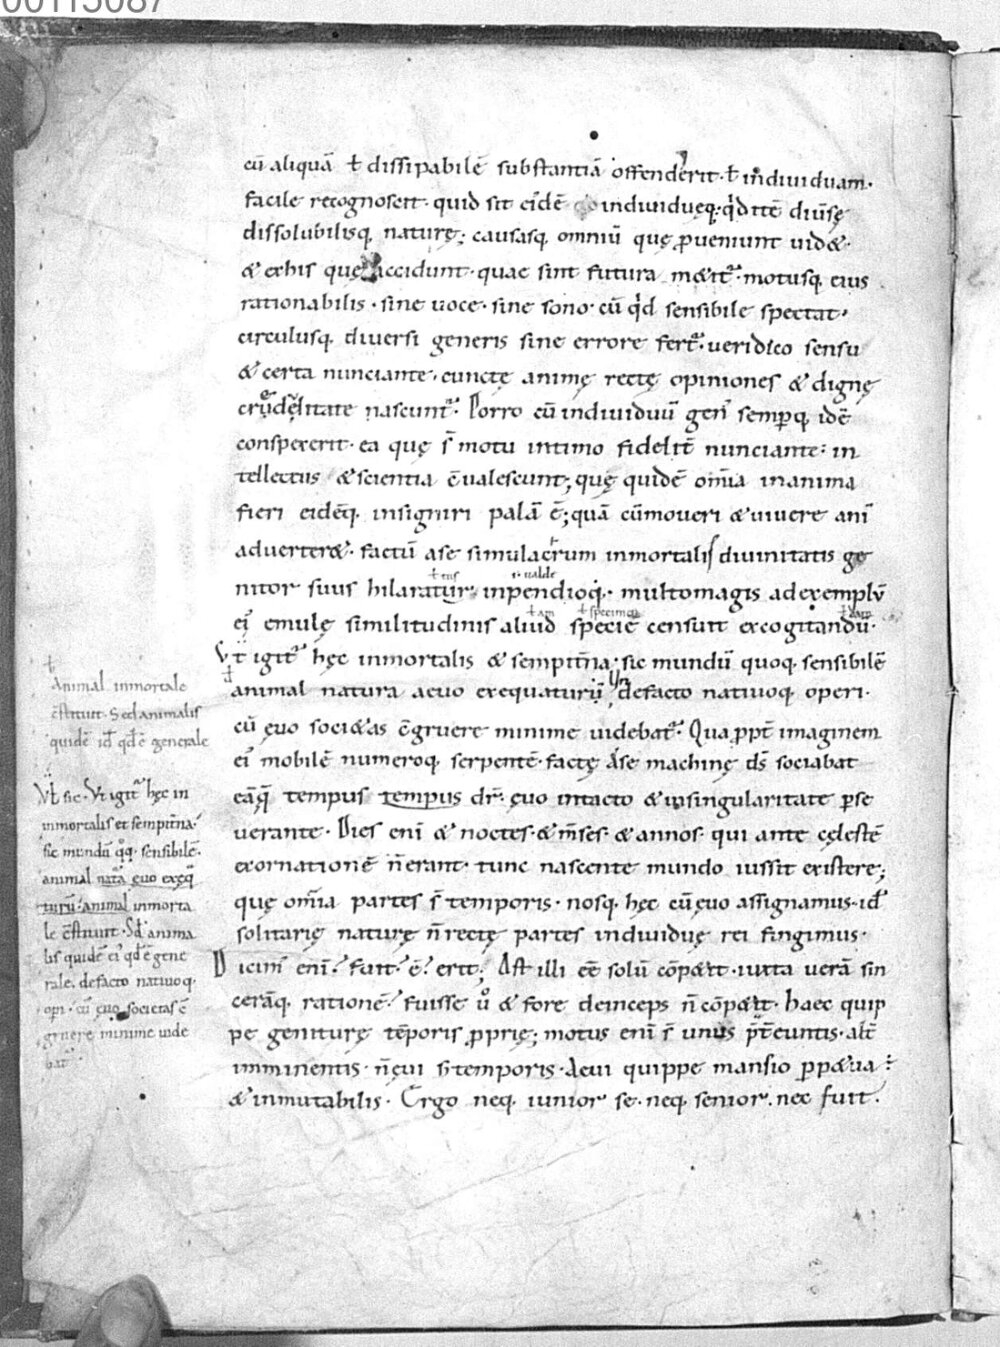 00115087
cū aliquā ł dissipabilē substantiā offenderit· ł indiuiduam·
facile recognoscit· quid sit eidē indiuiduęq; qd itē diuersę
dissolubilisq; naturę; causasq; omniū quę ꝓueniunt uid&·
& exhis quę accidunt· quae sint futura m&it᷑· motusq; eius
rationabilis· sine uoce· sine sono· cū qd sensibile spectat·
circulusq; diuersi generis sine errore fert᷑· ueridico sensu
& certa nunciante· cunctę animę rectę opiniones & dignę
credulitate nascunt᷑· Porro cū indiuiduū gen᷒ semꝑq; idē
conspexerit· ea quę s̄ motu intimo fidelit̄ nunciante· in
tellectus & scientia c̄ualescunt; quę quidē om̄ia inanima
fieri eidēq; insigniri palā ē; quā cūmoueri & uiuere ani
aduerter&· factū ase simulacrum inmortalis diuinitatis ge
ł tus s· ualde
nitor suus hilaratur· inpendioq;· multomagis adexemplū
ł am ł specimen
ei᷒ emulę similitudinis aliud speciē censuit excogitandū·
Vt igit᷑ hęc inmortalis & sempit̄na· sic mundū quoq; sensibilē
animal natura aeuo exequaturū defacto natiuoq; operi·
cū ęuo soci&as c̄gruere minime uidebat᷑· Qua ꝓpt̄ imaginem
ei᷒ mobilē numeroq; serpentē· factę ase machinę ds̄ sociabat
eāq; tempus tempus dr̄· ęuo intacto & insingularitate ꝑse
uerante· Dies eni & noctes· & m̄ses· & annos· qui ante cęlestē
exornationē n̄ erant· tunc nascente mundo iussit existere;
quę om̄ia partes s̄ temporis· nosq; hęc cū ęuo assignamus· id ē
solitarię naturę n̄ rectę partes indiuiduę rei fingimus·
Dicim᷒ eni· fuit· ē· erit; Ast illi eē solū cōp&it· iuxta uerā sin
cerāq; rationē· fuisse ů & fore deinceps n̄ cōp&it· haec quip
pe geniturę tēporis ꝓprię; motus eni s̄ unus p̄t̄euntis· alt̄
imminentis· n̄ ęui s; temporis· Aeui quippe mansio ꝑp&ua
& inmutabilis· Ergo neq; iunior se· neq; senior· nec fuit·
Animal inmortale
c̄stituit· Sed animalis
quidē id qd ē generale
Vł sic· Vt igit᷑ hęc in
inmortalis et sempit̄na·
sic mundū qq; sensibilē·
animal nata ęuo exęq
turū· animal inmorta
le c̄stituit· Sꝫ anima
lis quidē ei qd ē gene
rale, defacto natiuoq;
opi· cū ęuo societas c̄
gruere minime uide
bat᷑